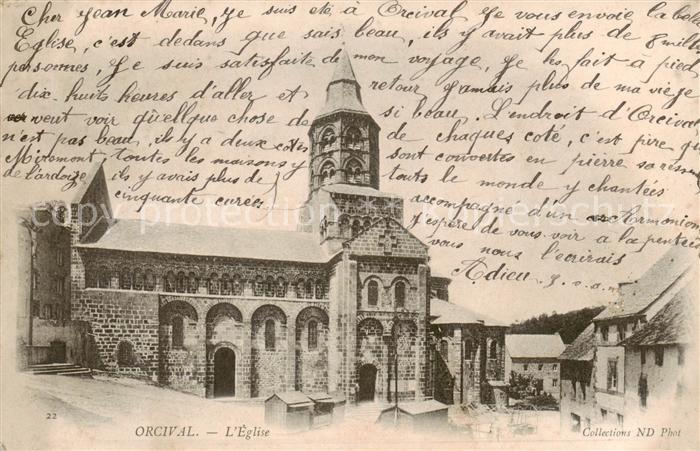 Cher Jean Marie, Je suis été à Orcival Je vous envoie la bel
Eglise, c'est dedans que sais beau, ils y avait plus de 8 mille
personnes, Je suis satisfaite de mon voyage, Je ho fait à pied
dix huits heures d'aller et retour Jamais plus de ma vieje
veut voir quelque chose de si beau. L'endroit d'Orcival
n'est pas beau, il y a deux cotes de chaques coté, c'est pire que
Miremont, toutes les maisons y sont convertes en pierre sa ressm
de l'ardoize ils y avais plus de touts le monde y chantées
cinquante curées accompagné d'un Armonion
J'espère de vous voir a la pentec
vous nous l'ecrirais
Adieu
copyright-schutz
22
ORCIVAL. — L'Église
Collections ND Phot